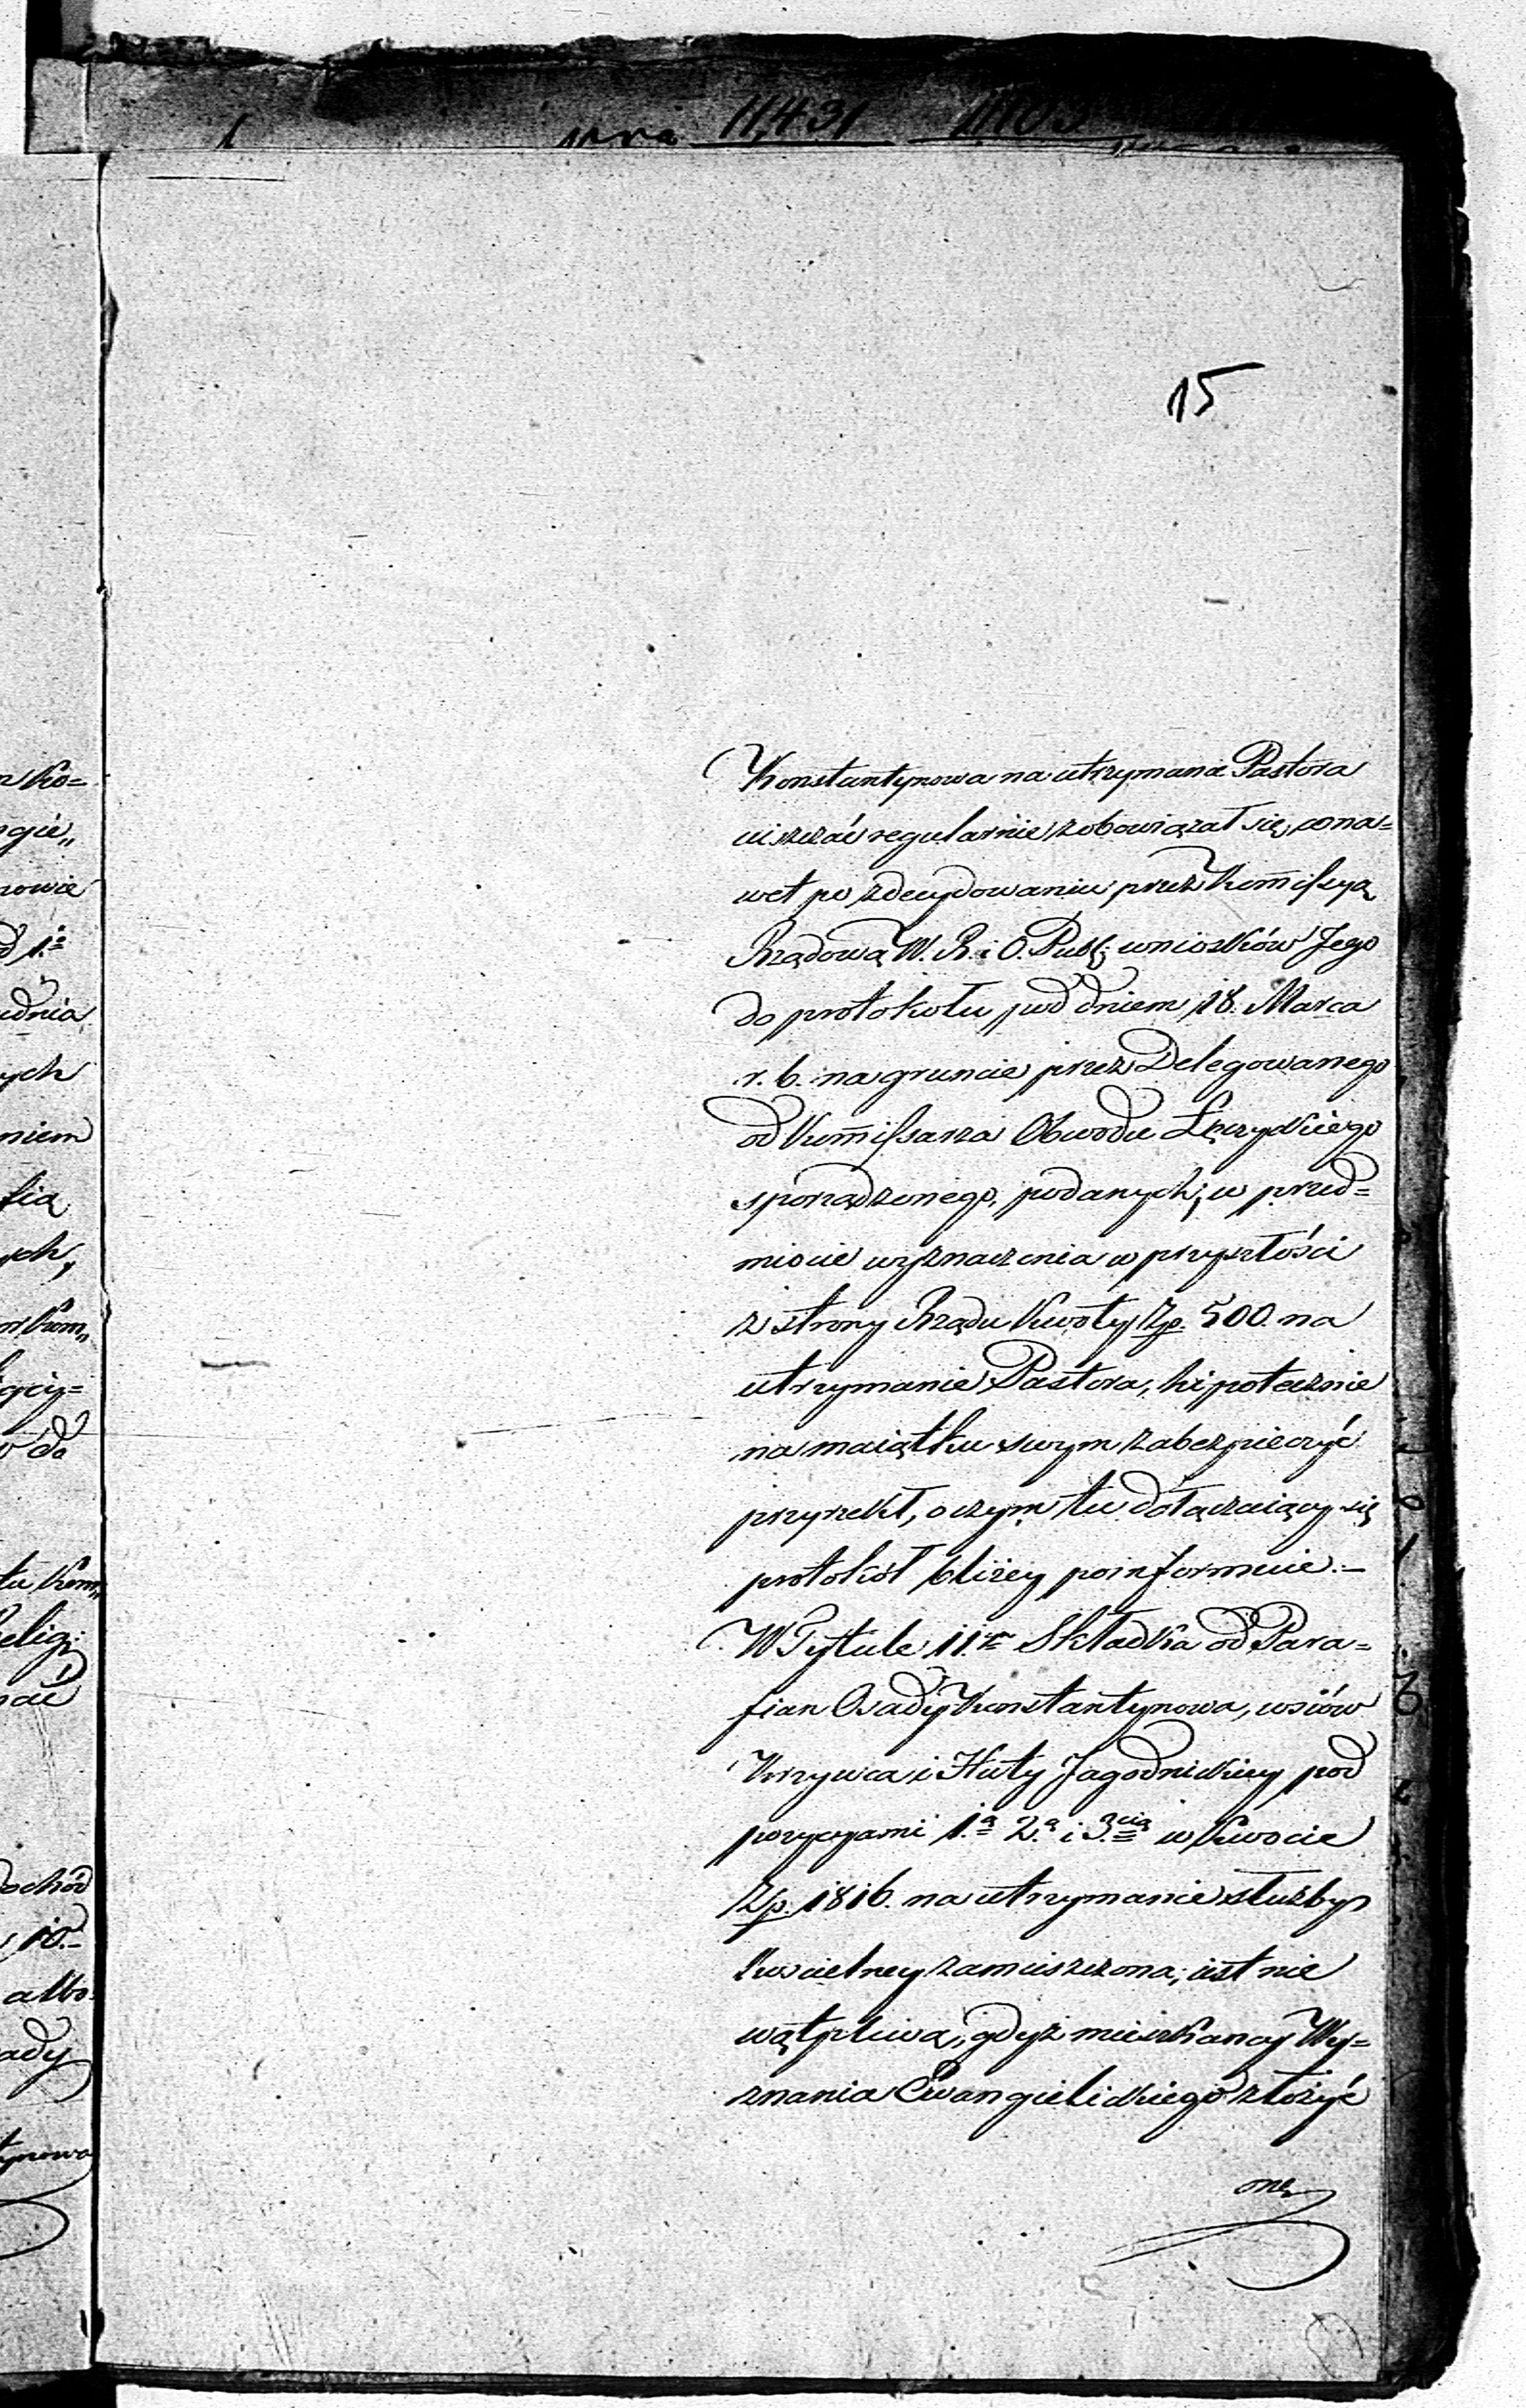 11,431
15
Konstantynowa na utrzymanie Pastora
uiszczać regularnie zobowiązał się, a na=
wet po zdecydowaniu przez Kommissyą
Rządową W. R. i O. Publ: wniosków Jego
do protokułu pod dniem 18. Marca
r. b. na gruncie przez Delegowanego
od Kommissarza Obwodu Łęczyckiego
sporządzonego, podanych, w przed=
miocie wyznaczenia w przyszłości
z strony Rządu Kwoty Zp. 500. na
utrzymanie Pastora, hipotecznie
na maiątku swym zabezpieczyć
przyrzekł, o czym tu dołączaiący się
protokół bliżey poinformuie.–
W Tytule II. Składka od Para=
fian Osady Konstantynowa, wsiów
Krzywca i Huty Jagodnickiey pod
pozycyami 1.ą 2.ą i 3.cią w Kwocie
Zp. 1816. na utrzymanie służby
Kościelney zamieszczona, iest nie
wątpliwą, gdyż mieszkańcy Wy=
znania Ewangielickiego złożyć
onę